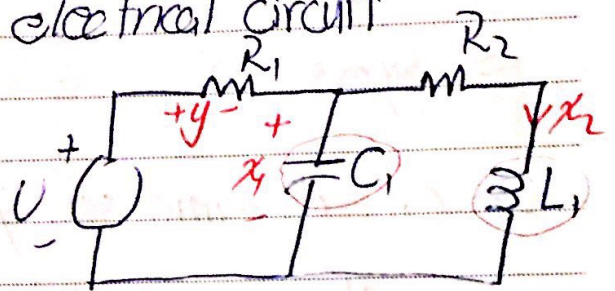 electrical circuit
R1 R2
+y- + x2
+ x1 C1 L1
U -
-